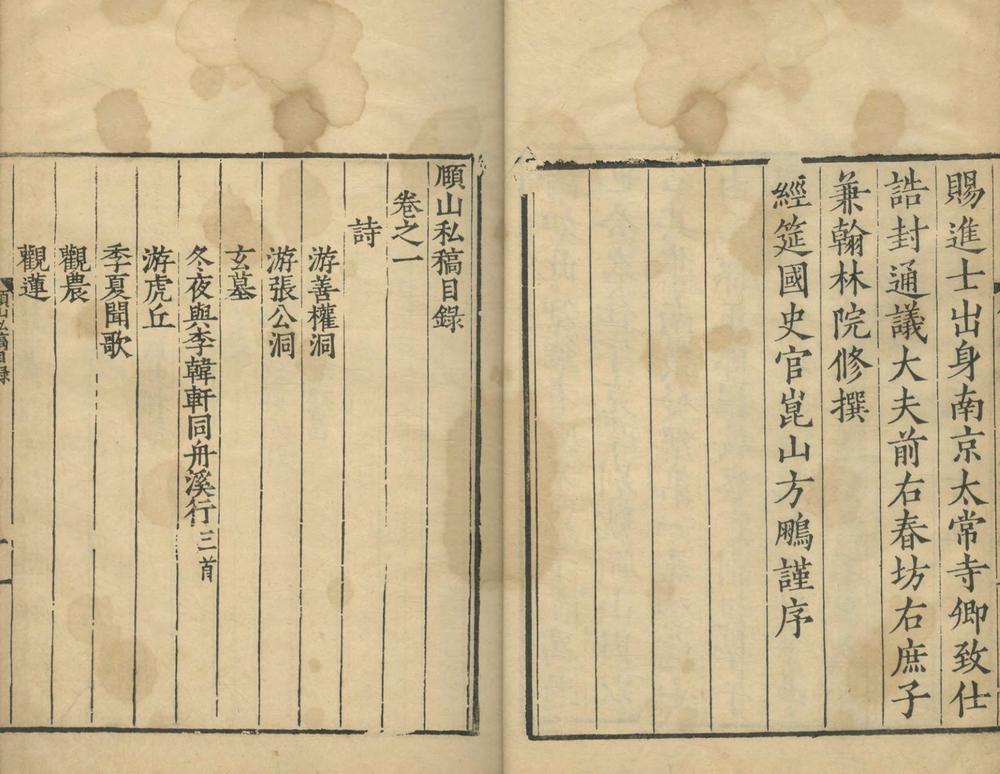 賜進士出身南京太常寺卿致仕
誥封通議大夫前右春坊右庶子
兼翰林院修撰
經筵國史官崑山方鵬謹序
頋山私稿目錄
卷之一
詩
游善權洞
游張公洞
玄墓
冬夜與李韓軒同舟溪行三首
游虎丘
季夏聞歌
觀農
觀蓮